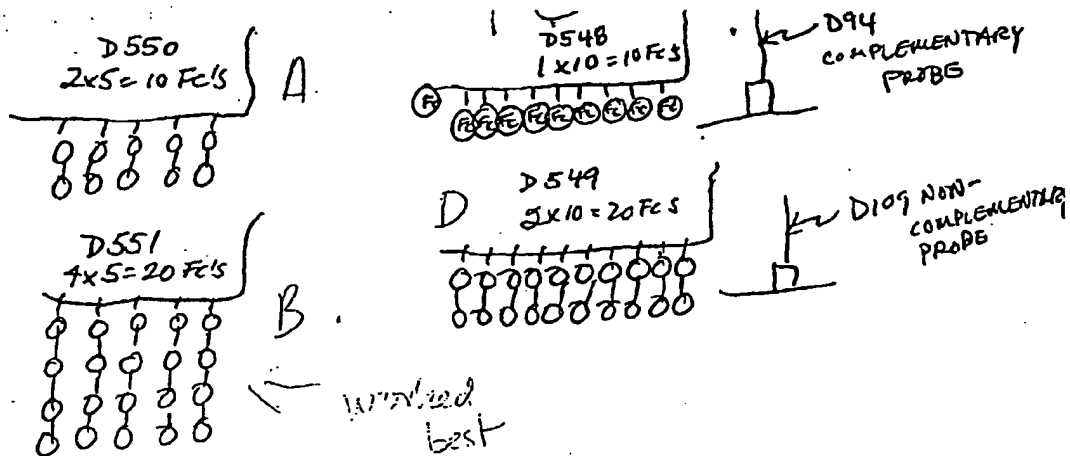 D550
2x5=10 Fc's
A
D548
1x10=10Fc's
Fc
Fc Fc Fc Fc Fc Fc Fc Fc Fc
D94
COMPLEMENTARY
PROBE
D551
4x5=20 Fc's
B
D
D549
2x10=20Fc's
D109 NON-
COMPLEMENTARY
PROBE
worked
best